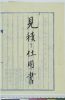 見積仕用書